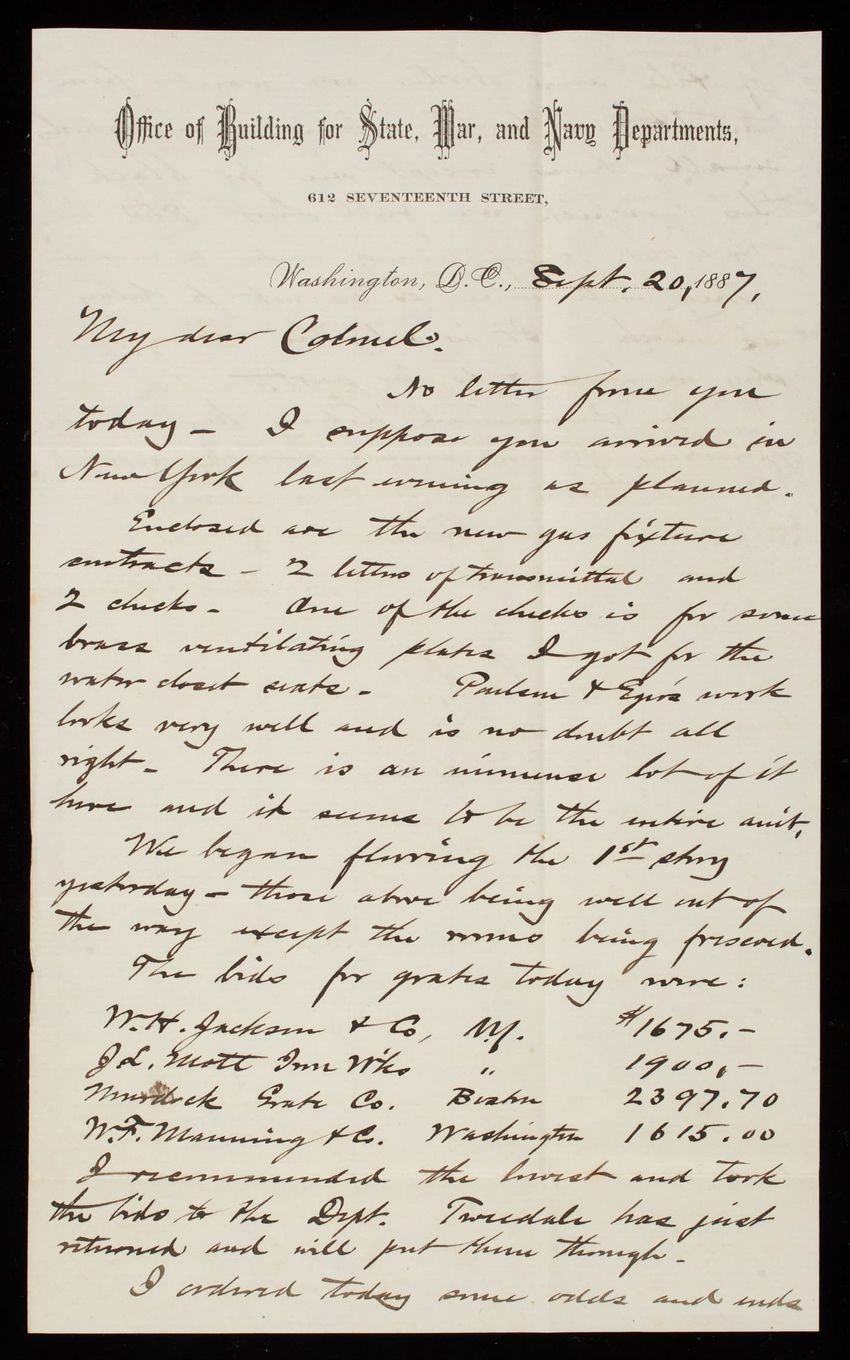 Office of Building for State, War, and Navy Departments,
612 SEVENTEENTH STREET,
Washington, D.C., Sept. 20, 1887.
My dear Colonel.
No letter from you
today — I suppose you arrived in
New York last evening as planned.
Enclosed are the new gas fixture
contracts — 2 letters of transmittal and
2 checks — One of the checks is for some
brass ventilating plates I got for the
water closet seats — Paulsen & Eger's work
looks very well and is no doubt all
right — There is an immense lot of it
here and it seems to be the entire amt.
We began flooring the 1st story
yesterday — those above being well out of
the way except the rooms being frescoed.
The bids for grates today were:
W.H. Jackson & Co, N.Y. $1675.—
J.L. Mott Iron Wks " 1900.—
Murdock Grate Co. Boston 2397.70
W.F. Manning & Co. Washington 1615.00
I recommended the lowest and took
the bids to the Dept. Tweedale has just
returned and will put them through —
I ordered today some odds and ends